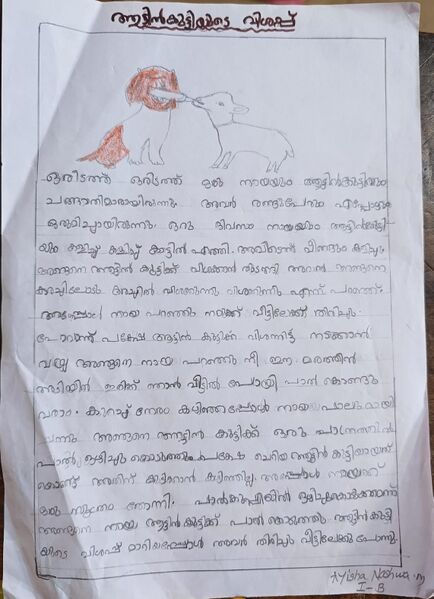 ആട്ടിൻകുട്ടിയുടെ വിശപ്പ്
ഒരിടത്ത് ഒരിടത്ത് ഒരു നായയും ആട്ടിൻകുട്ടിയും
ചങ്ങാതിമാരായിരുന്നു അവർ രണ്ടുപേരും എപ്പോളും
ഒരുമിച്ചായിരുന്നു. ഒരു ദിവസം നായയും ആട്ടിൻകുട്ടി
യും കളിച്ച് കളിച്ച് കാട്ടിൽ എത്തി. അവിടെന്ന് വീണ്ടും കളിച്ചു.
അങ്ങനെ ആട്ടിൻ കുട്ടിക്ക് വിശക്കാൻ തുടങ്ങി അവൻ
വിശക്കുന്നു വിശക്കുന്നു എന്ന് പറഞ്ഞു.
അപ്പോൾ നായ പറഞ്ഞു നമുക്ക് വീട്ടിലേക്ക് തിരിച്ചു.
പോവാം പക്ഷേ ആട്ടിൻ കുട്ടിക്ക് വിശന്നിട്ട് നടക്കാൻ
വയ്യ അങ്ങനെ നായ പറഞ്ഞു നീ ഈ മരത്തിൻ
അടിയിൽ ഇരിക്ക് ഞാൻ വീട്ടിൽ പോയി പാൽ കൊണ്ടു
വരാം. കുറച്ച് നേരം കഴിഞ്ഞപ്പോൾ നായ പാലുമായി
വന്നു അങ്ങനെ ആട്ടിൻ കുട്ടിക്ക് ഒരു പാത്രത്തിൽ
പാൽ ഒഴിച്ചു കൊടുത്തു പക്ഷേ ചെറിയ ആട്ടിൻ കുട്ടിയായത്
കൊണ്ട് അതിന് കുടിക്കാൻ കഴിഞ്ഞില്ല. അപ്പോൾ നായക്ക്
ഒരു സൂത്രം തോന്നി. പാൽക്കുപ്പിയിൽ ഒഴിച്ചുകൊടുക്കാന്ന്
അങ്ങനെ നായ ആട്ടിൻകുട്ടിക്ക് പാൽ കൊടുത്തു ആട്ടിൻകുട്ടി
യുടെ വിശപ്പ് മാറിയപ്പോൾ അവർ തിരിച്ചു വീട്ടിലേക്കു പോന്നു.
Ayisha Nashwa .m
I-B